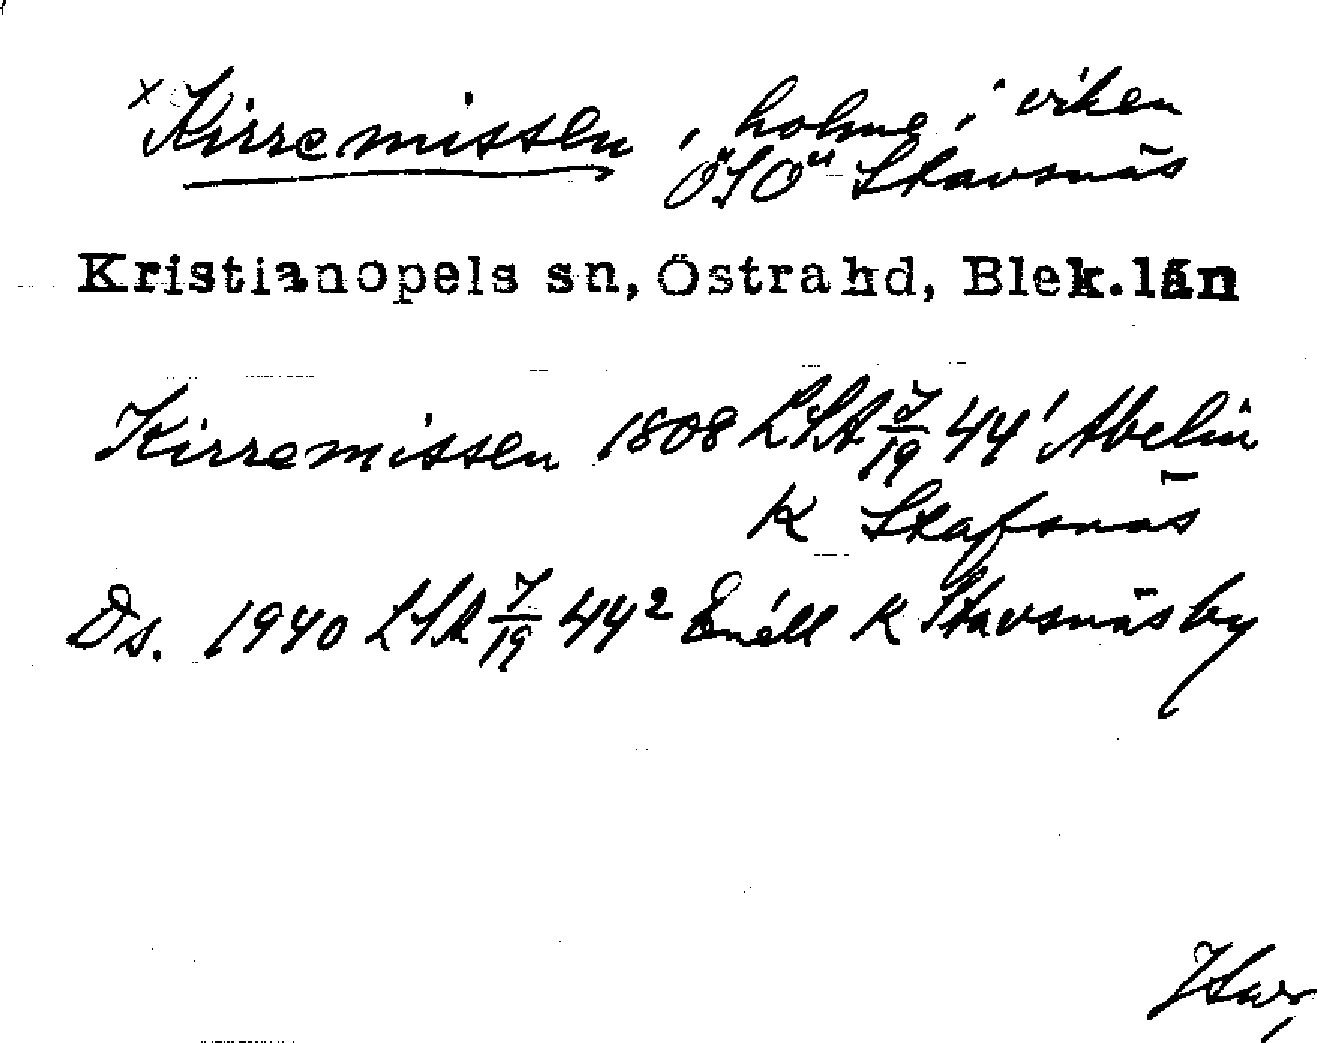 × Kirremissen, holme i viken
ÖSÖ" Stavsnäs
Kristianopels sn, Östra hd, Blek. län
Kirremissen 1808 LSA 7/19 44¹ Abelin
K Stafsnäs
Ds. 1940 LSA 7/19 44² Enéll K Stavsnäs by